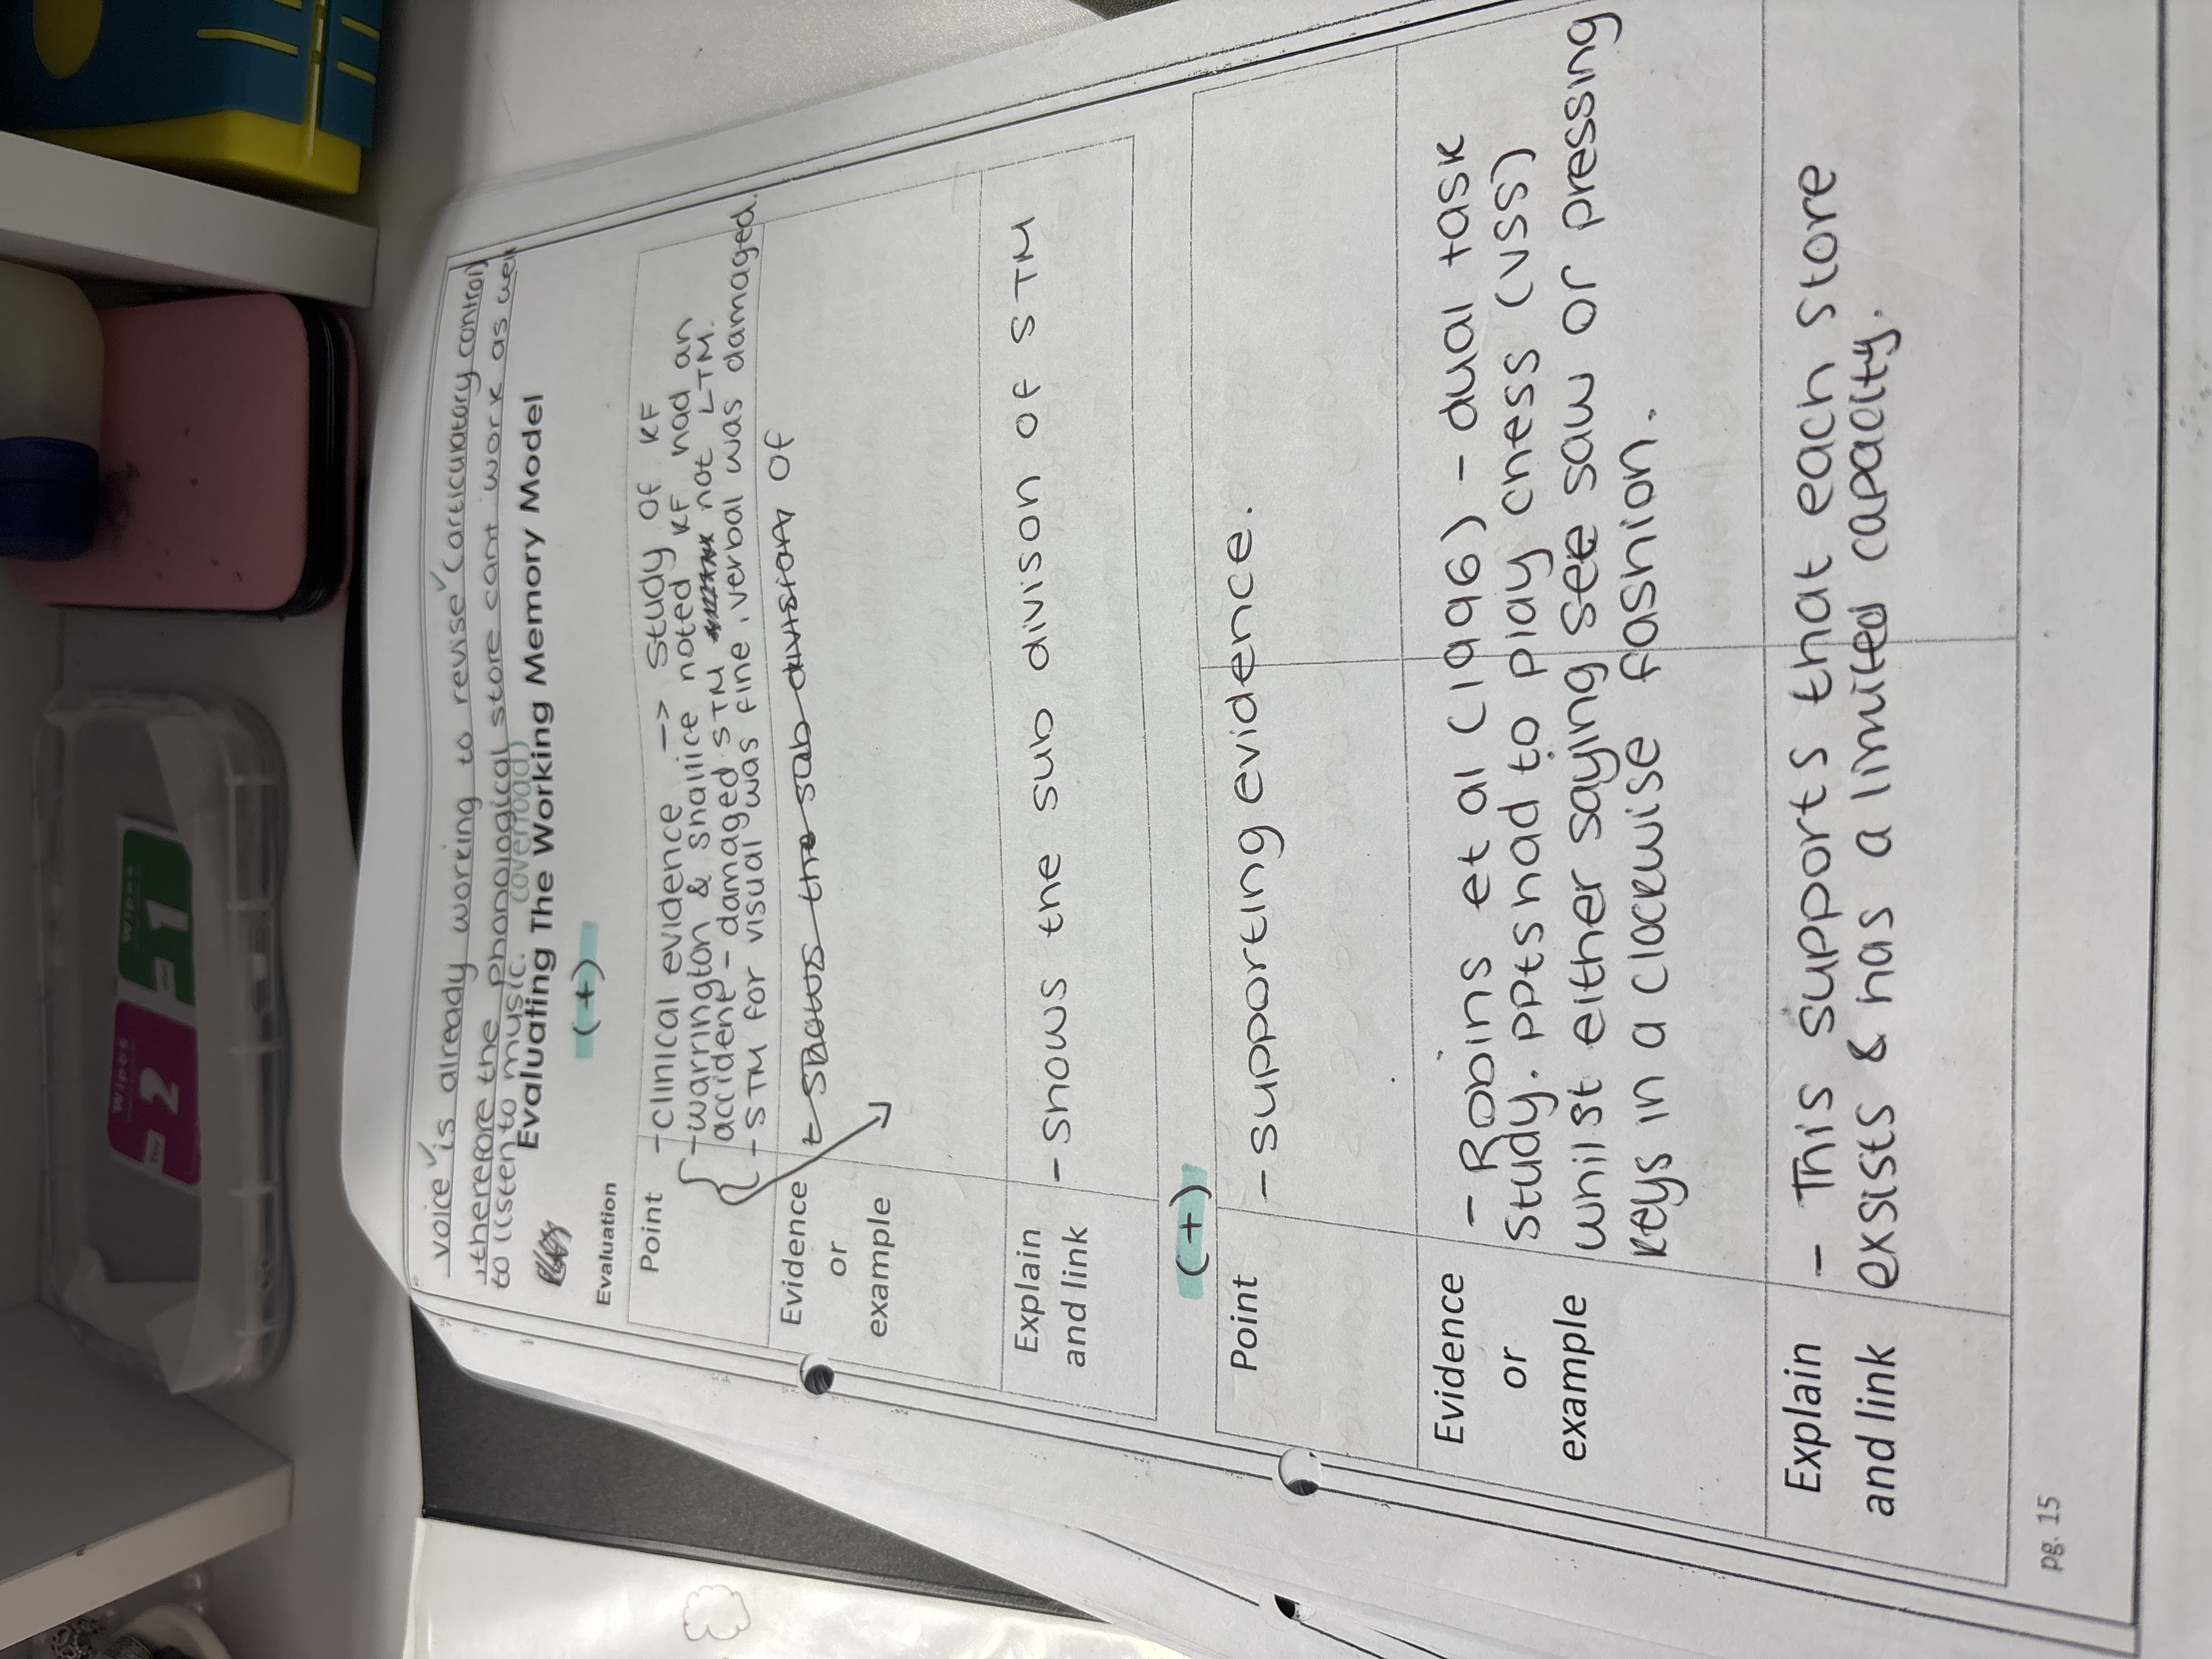 voice is already working to revise (articulatory control)
therefore the phonological store cant work as well
to listen to music. (overload)
Evaluating The Working Memory Model
(+)
Evaluation
Point
- clinical evidence -> study of KF
- warrington & shallice noted KF had an
accident - damaged STM not LTM.
- STM for visual was fine, verbal was damaged.
Evidence
or
example
- shows the sub division of
Explain
and link
- shows the sub divison of STM
(+)
Point
- supporting evidence.
Evidence
or
example
- Robins et al (1996) - dual task
study. ppts had to play chess (VSS)
whilst either saying see saw or pressing
keys in a clockwise fashion.
Explain
and link
- This supports that each store
exsists & has a limited capacity.
pg. 15
Wipes
2
Wipes
1